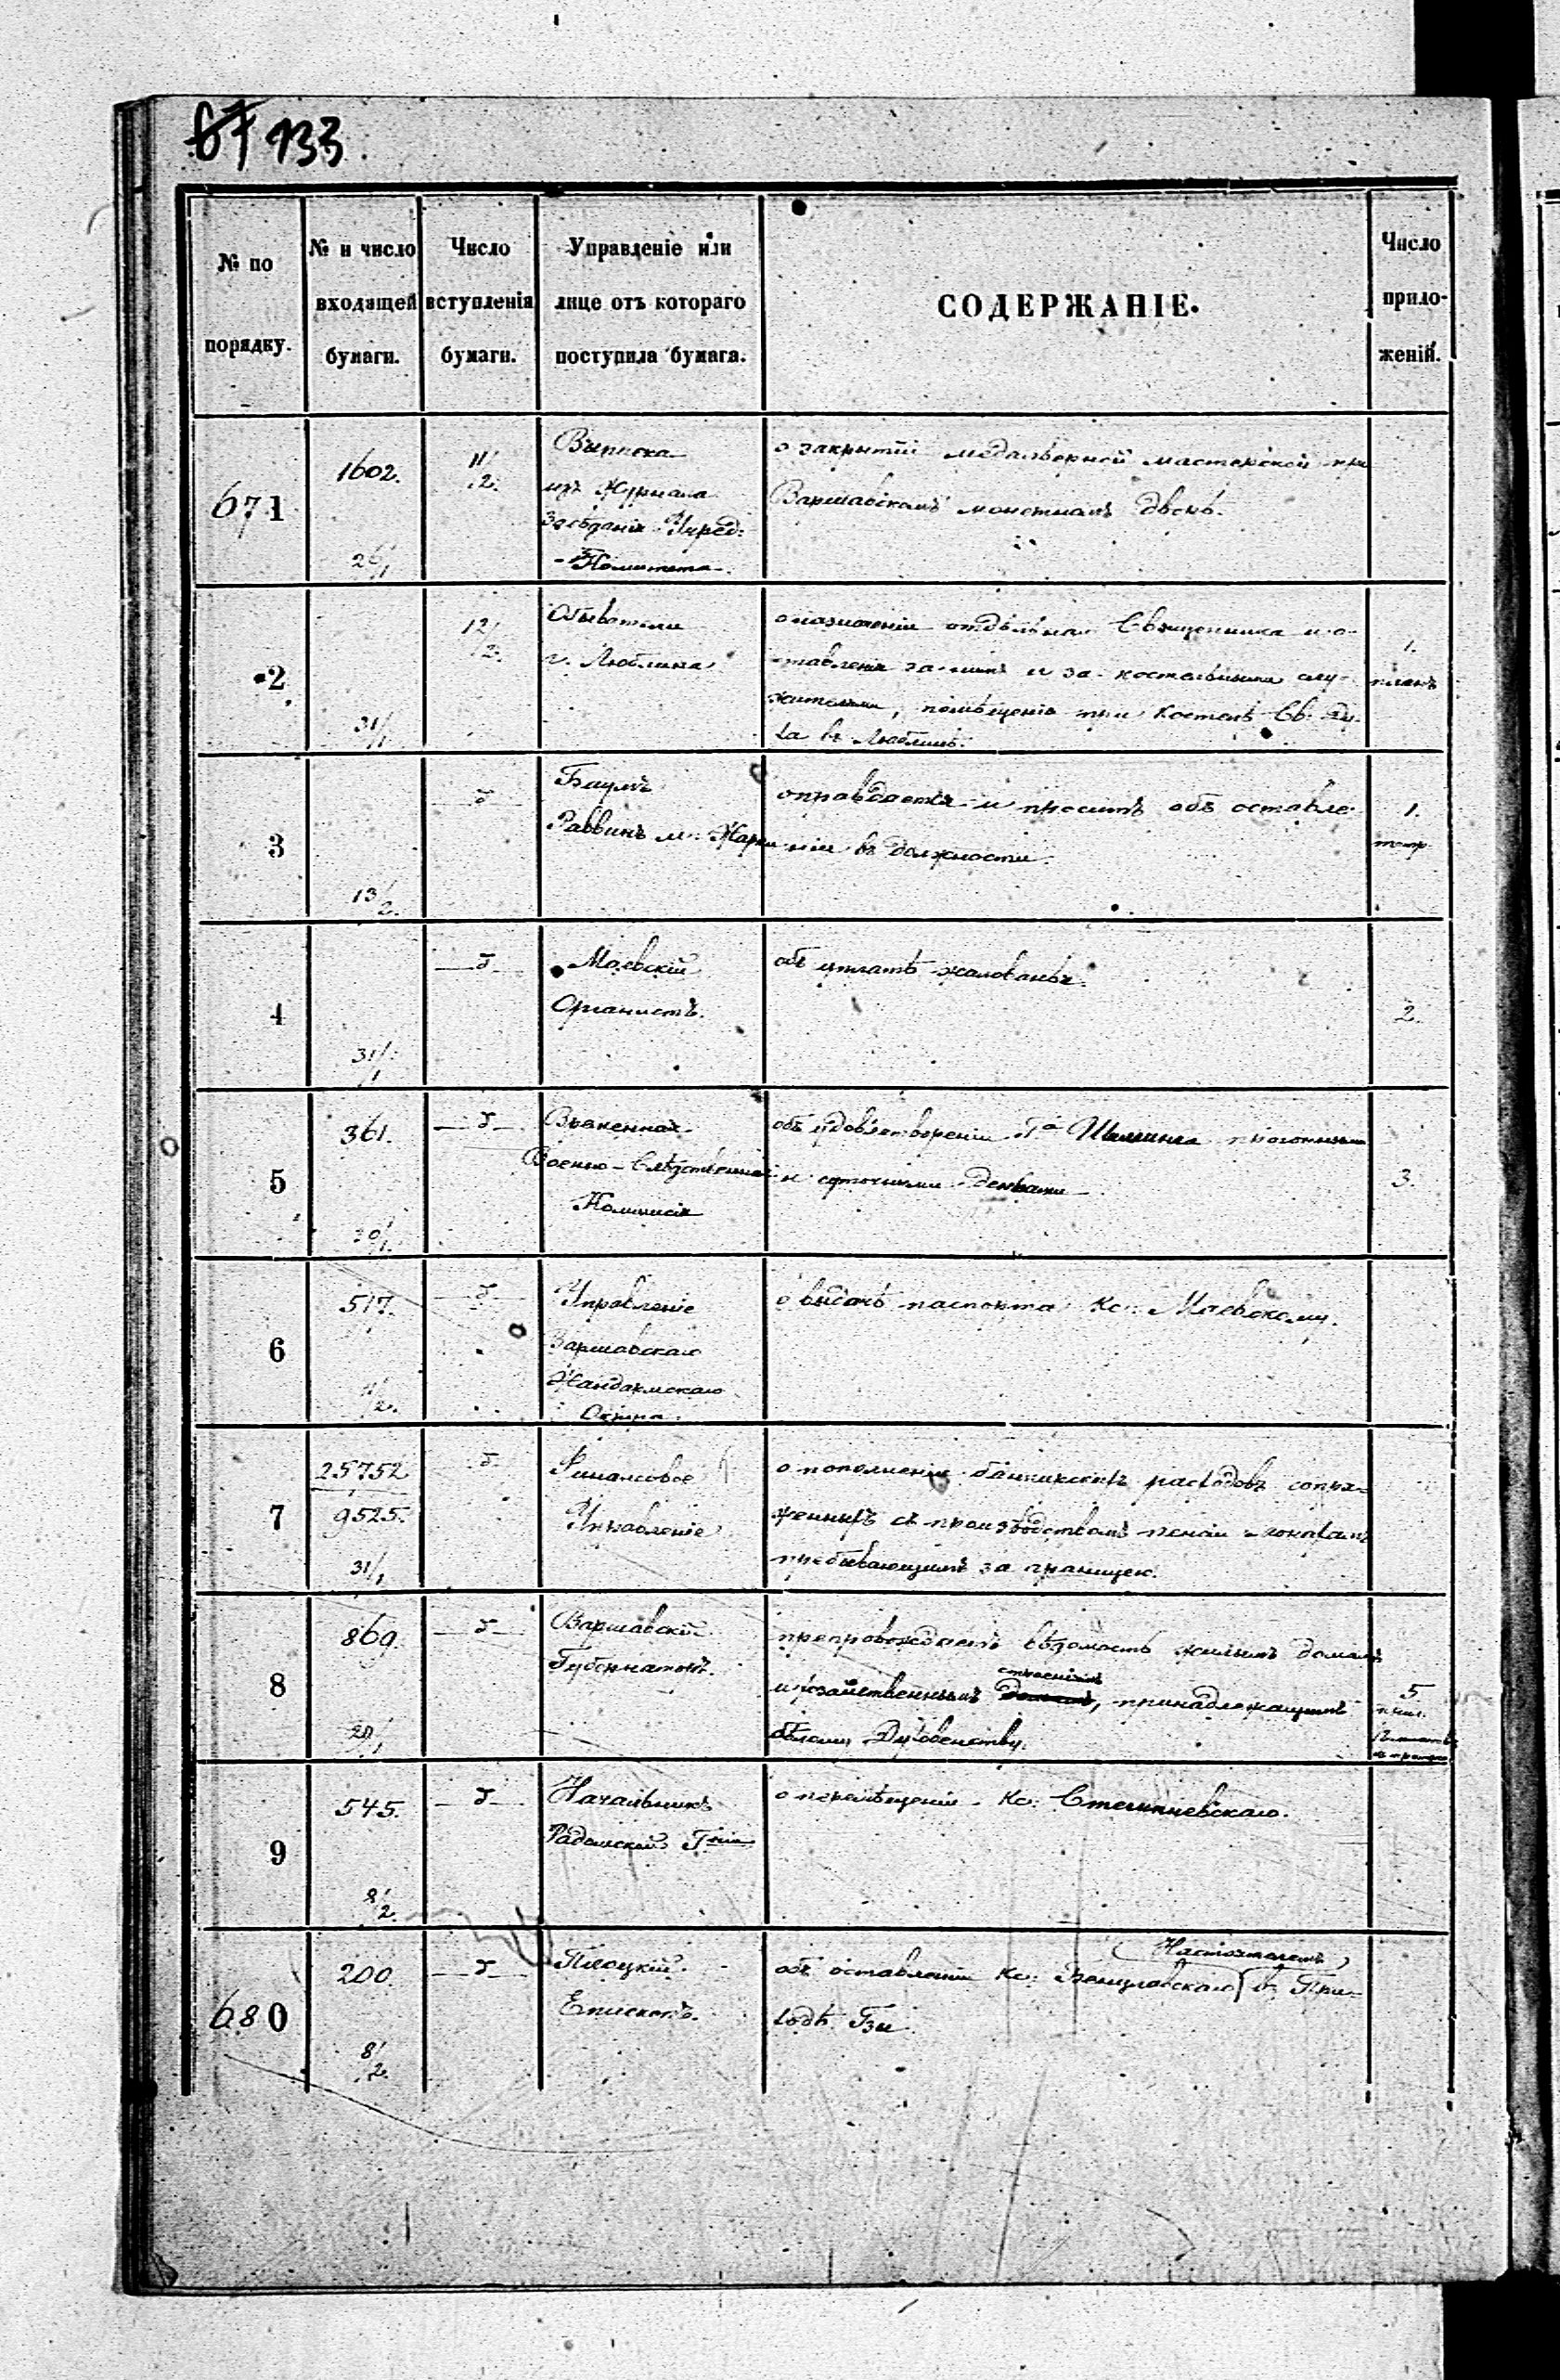 67 133
№ по порядку.
№ и число входящей бумаги.
Число вступленія бумаги.
Управленіе или лице отъ котораго поступила бумага.
СОДЕРЖАНІЕ.
Число приложеній.
671
1602.
26/1
11/2.
Выписка
изъ Журнала
Засѣданія Учред:
Комитета
о закрытіи медальерной мастерской при
Варшавскомъ монетномъ дворѣ.
2
31/1
12/2.
Обыватели
г. Люблина
о назначеніи отдѣльнаго Священника и о-
ставленія за нимъ и за костельными слу-
жителями, помѣщенія при Костелѣ Св. Ду-
ха въ Люблинѣ.
1.
планъ
3
13/2.
Баумъ
Раввинъ м.
оправдается и проситъ объ оставле-
ніи въ должности.
1.
4
31/1
Маевскій
Органистъ.
объ уплатѣ жалованья.
2.
5
361.
20/1.
Временная
Военно-Слѣдственная
Коммисія
объ удовлетвореніи Г-а прогонными
и суточными деньгами
3.
6
517.
11/2.
Управленіе
Варшавскаго
Жандармскаго
Округа.
о выдачѣ паспорта Кс: Маевскому.
7
25752
9525.
31/1
Финансовое
Управленіе
о пополненіи банкирскихъ расходовъ сопря-
женныхъ съ производствомъ пенсіи монахамъ
пребывающимъ за границею.
8
869.
29/1
Варшавскій
Губернаторъ.
препровождаетъ вѣдомость жилымъ домамъ
строеніямъ
и хозяйственнымъ домамъ, принадлежащимъ
бѣлому Духовенству.
5
9
545.
8/2.
Начальникъ
Радомской Г-ніи
о перемѣщеніи Кс:
680
200.
8/2.
Плоцкій
Епископъ.
Настоятелемъ
объ оставленіи Кс: въ При-
ходѣ Гзы